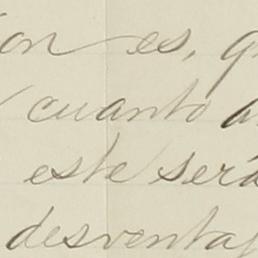 ion es, q
cuanto a
este será
desventaj